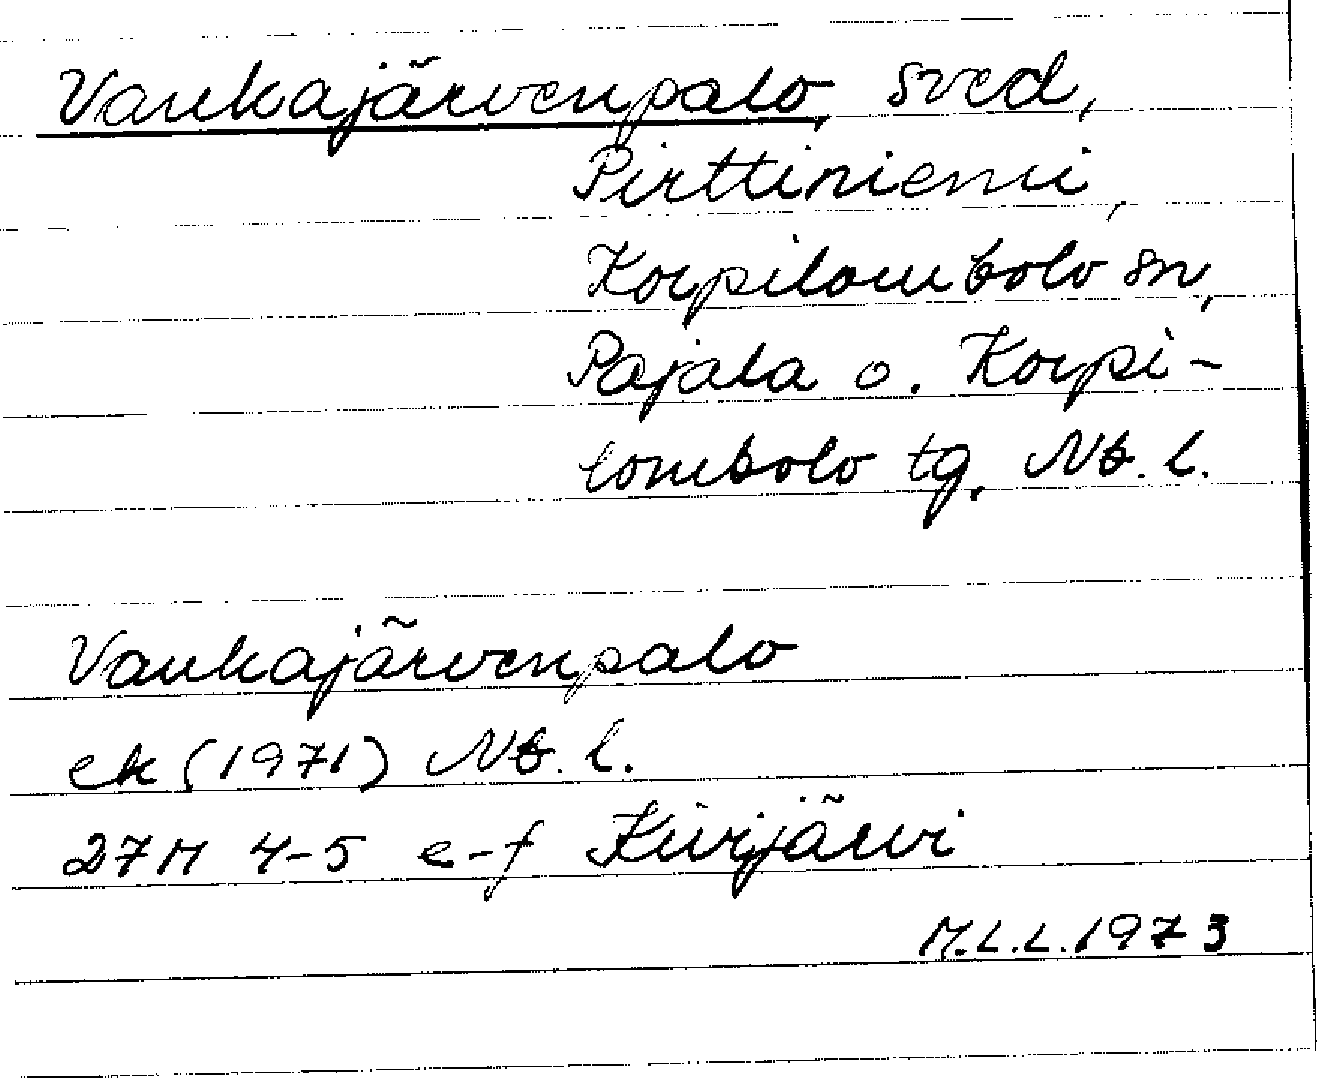 Vankajärvenpalo, sved,
Pirttiniemi,
Korpilombolo sn,
Pajala o. Korpi-
lombolo tg, Nb. l.
Vankajärvenpalo
ek (1971) Nb. l.
27M 4-5 e-f Kivijärvi
M.L.L. 1973